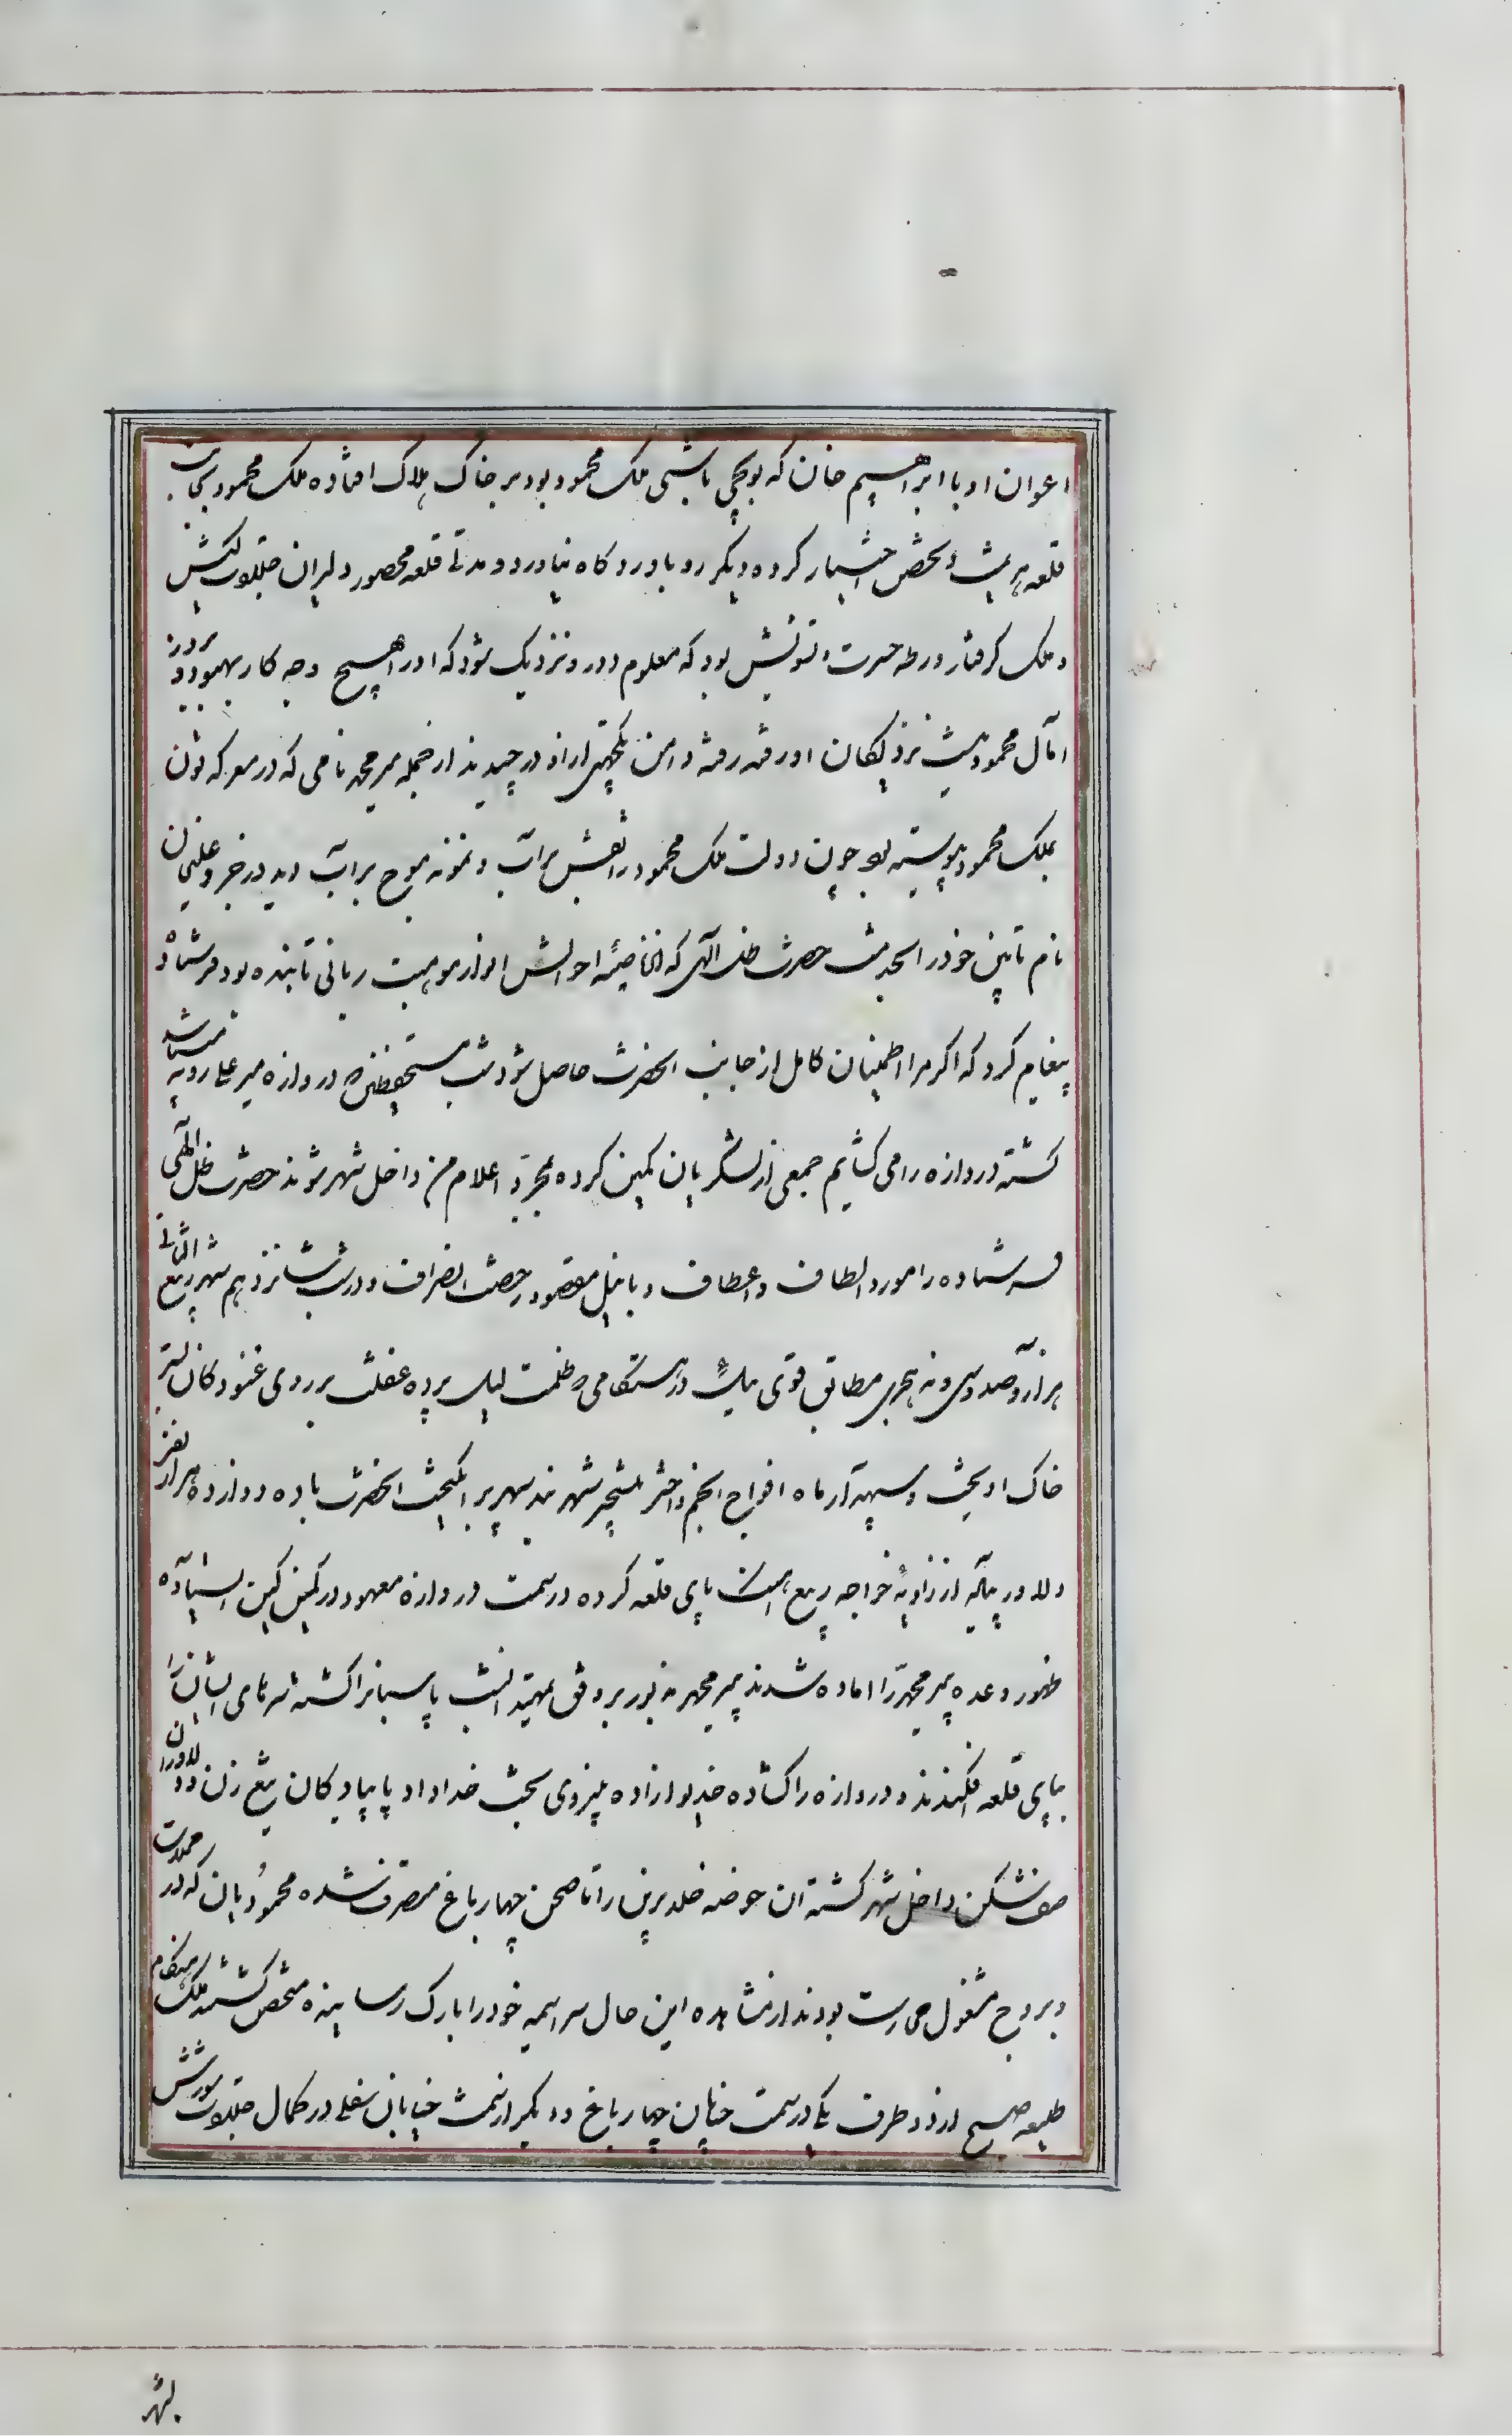 اعوان او با ابراهیم خان که توپچی باشی ملک محمود بود بر خاک هلاک افتاده ملک محمود بجانب
قلعه هزیمت و تحصن اختیار کرده دیگر رو بآوردگاه نیاورد و مدتی قلعه محصور دلیران جلادت کیش
و ملک گرفتار ورطه حسرت و تشویش بود که معلوم دور و نزدیک شود که او را هیچ وجه کار بهبود و روز
امآل محمود نیست نزدیکان او رفته رفته دامن یکجهتی از او در چیدند از جمله میر محمد نامی که در معرکه تون
بملک محمود پیوسته بود چون دولت ملک محمود را نقش بر آب و نمونه موج بر آب دید در خفیه و علیجان
نام تابین خود را بخدمت حضرت ظل الهی که از ناصیه احوالش انوار موهبت ربانی تابنده بود فرستاد و
پیغام کرد که اگر مرا اطمینان کامل از جانب آنحضرت حاصل شود شب مستحفظین دروازه میر علی رویه
گشته دروازه را می گشایم جمعی از لشکریان کمین کرده بمجرد اعلام من داخل شهر شوند حضرت ظل الهی
فرستاده را مورد الطاف و اعطاف و با نیل مقصود رخصت انصراف و در شب شانزدهم شهر ربیع الثانی
هزار و صد و سی و نه هجری مطابق قوی ئیل در هنگامی که ظلمت لیل پرده غفلت بر روی غنودگان بستر
خاک آویخت و سپهدار ماه افواج انجم و اختر بتسخیر شهر بند سپهر بر انگیخت آنحضرت با ده دوازده هزار نفر
دلاور پیاده از زاویه خواجه ربیع آهنک پای قلعه کرده در سمت دروازه معهود در کمین کین ایستاده
ظهور وعده میر محمد را آماده شدند میر محمد مزبور بر وفق تمهید آنشب پاسبانرا کشته سر تمامی ایشان را
بپای قلعه افکندند و دروازه را گشاده خدیو آزاده بنیروی بخت خداداد با پیادگان تیغ زن و دلاوران
صف شکن داخل شهر گشته آن حوضه خلد برین را تا صحن چهار باغ متصرف شده محمودیان که در محلات
و بروج مشغول حراست بودند از مشاهده این حال سراسیمه خود را بارک رسانیده متحصن گشتند ملک هنگام
طلیعه صبح از دو طرف یکی در سمت خیابان چهار باغ و دیگر از سمت خیابان سفلی در کمال جلادت شورش
بشهر